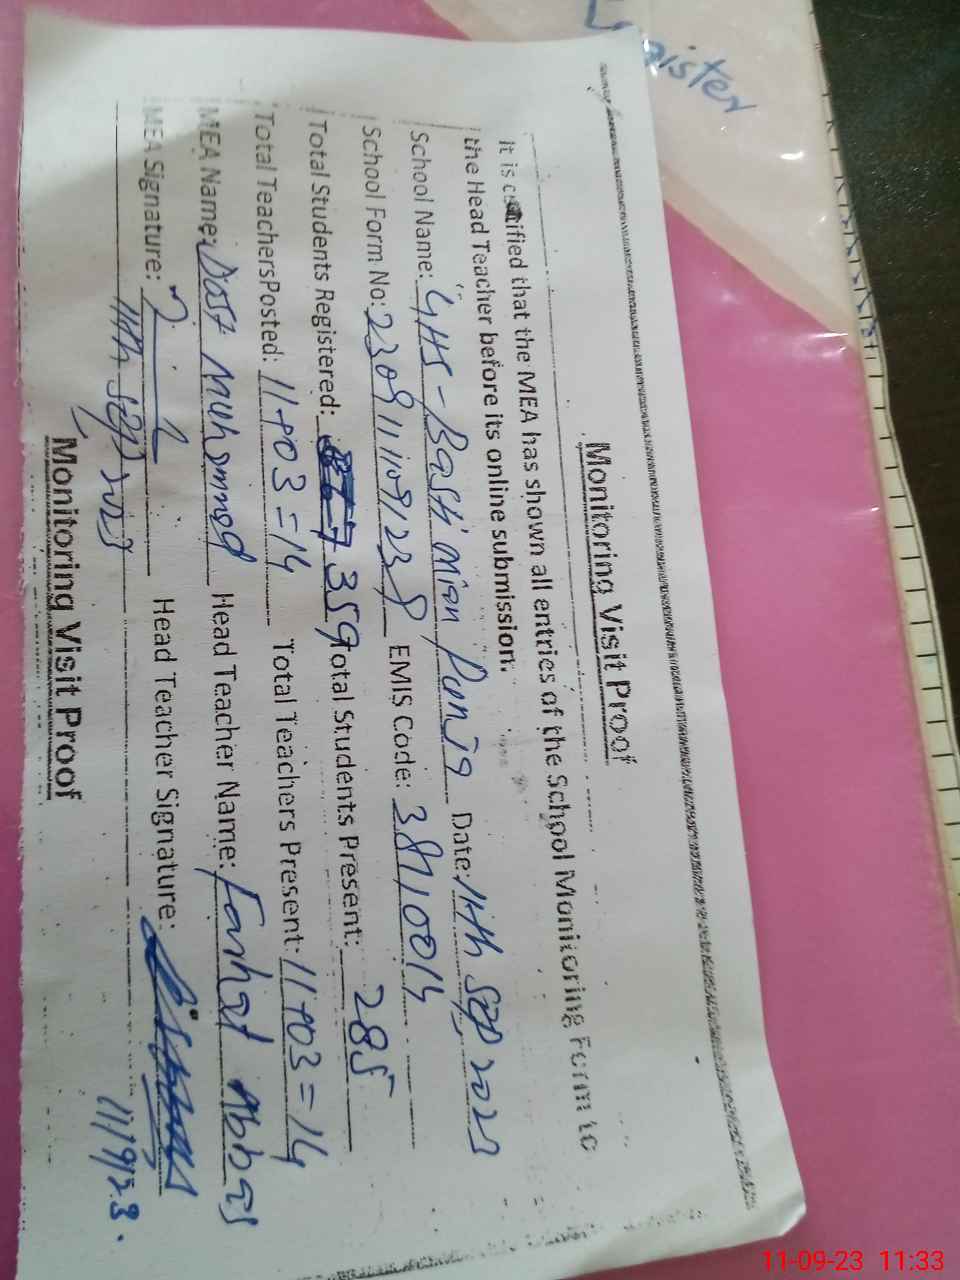 Register
Monitoring Visit Proof
It is certified that the MEA has shown all entries of the School Monitoring Form to
the Head Teacher before its online submission.
School Name: GHS - Bash mian Punja Date: 11th Sep 2023
School Form No: EMIS Code: 38110014
Total Students Registered: 359 Total Students Present: 285
Total Teachers Posted: 11+03=14 Total Teachers Present: 11+03=14
MEA Name: Dost Muhammad Head Teacher Name: Farhat Abbas
MEA Signature: Head Teacher Signature:
11th Sep 2023 11/9/23.
Monitoring Visit Proof
11-09-23 11:33